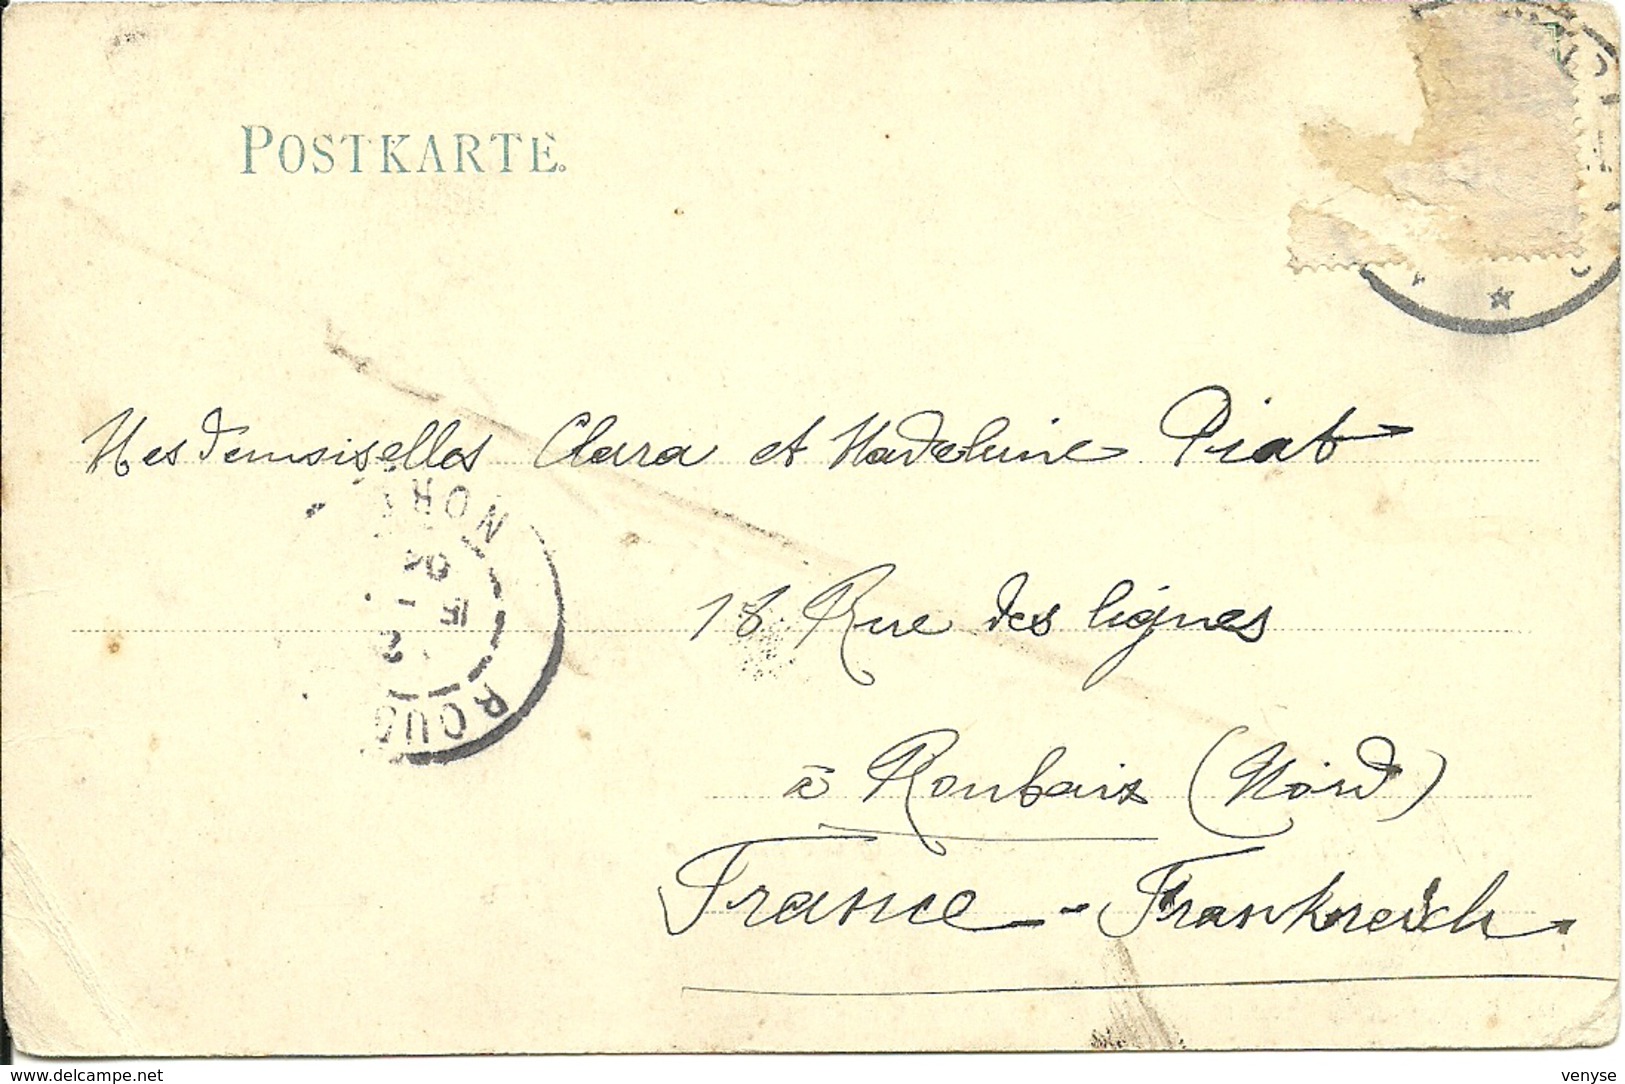 POSTKARTE.
Mesdemoiselles Clara et Madeleine Piat
18 Rue des lignes
à Roubaix (Nord)
France - Frankreich.
NORD
15 - 2
04
ROUB
www.delcampe.net
venyse